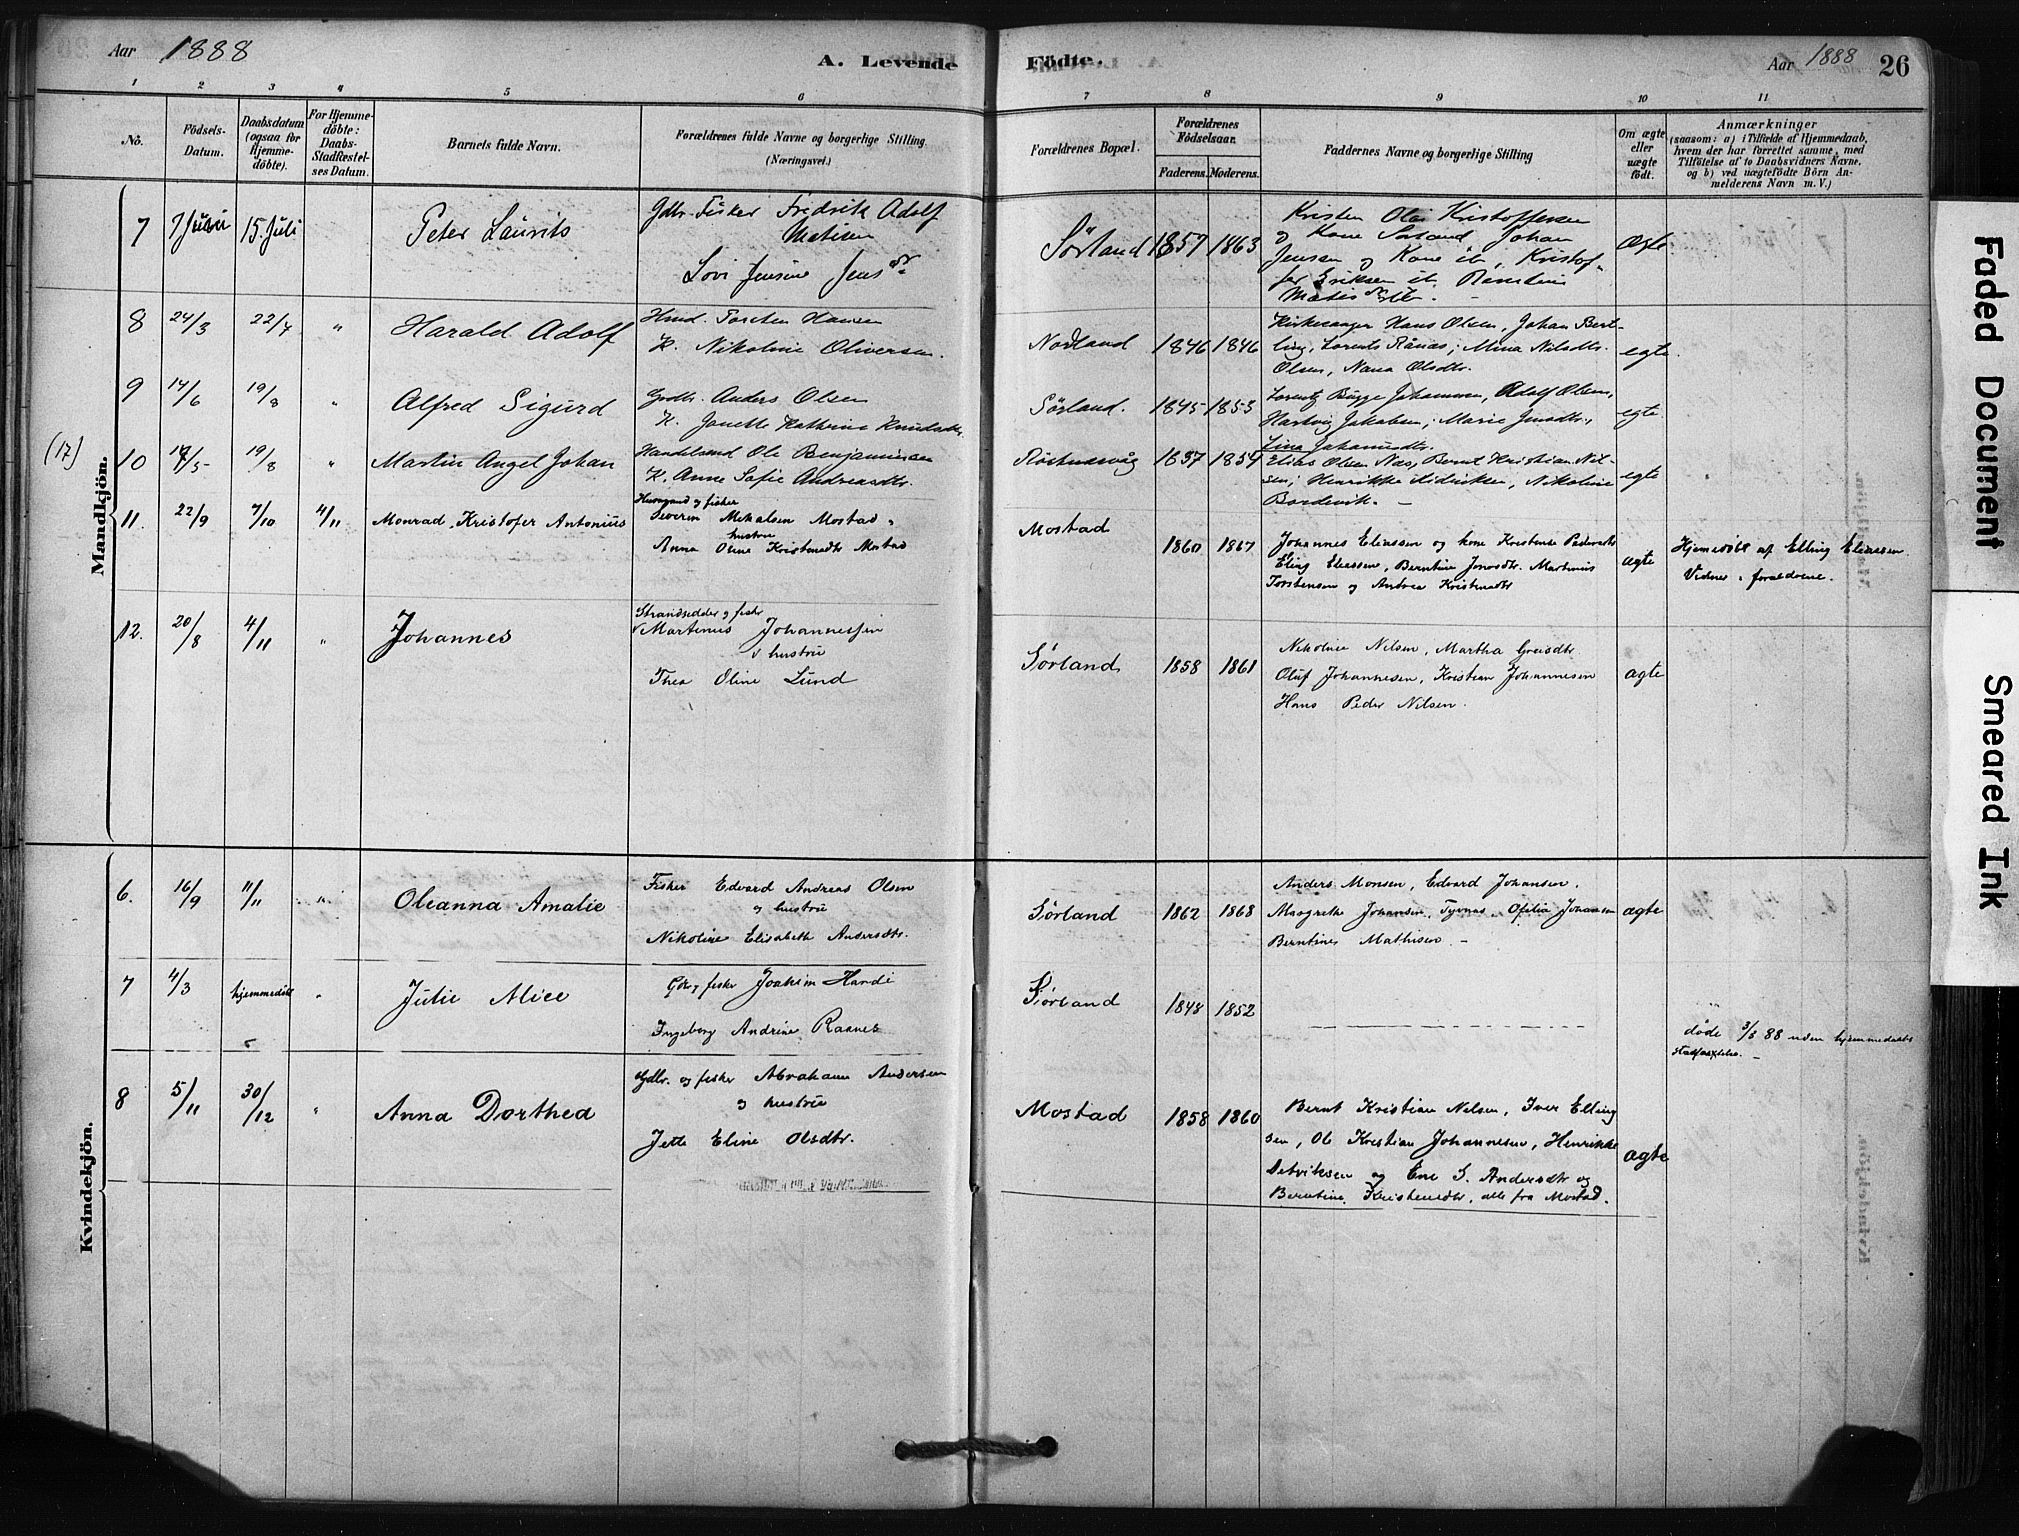 Aar 1888
A. Levende Födte.
Aar 1888 26
1 2 3 4 5 6 7 8 9 10 11
No.
Födsels-
Datum.
Daabsdatum
(ogsaa for
Hjemme-
döbte).
For Hjemme-
döbte:
Daabs-
Stadfæstel-
ses Datum.
Barnets fulde Navn.
Forældrenes fulde Navne og borgerlige Stilling
(Næringsvei.)
Forældrenes Bopæl.
Forældrenes
Födselsaar.
Faderens. Moderens.
Faddernes Navne og borgerlige Stilling
Om ægte
eller
uægte
födt.
Anmærkninger
(saasom: a) i Tilfælde af Hjemmedaab,
hvem der har forrettet samme, med
Tilföielse af to Daabsvidners Navne.
og b) ved uægtefödte Börn An-
melderens Navn m. V.)
Mandkjön.
(17)
7 7 Juni 15. Juli Peter Laurits
Gdbr. Fisker Fredrik Adolf
Matisen
Lovi Jensine Jens dr
Sørland 1857 1863
Kristen Olai Kristoffersen
og Kone Sørland Johan
Jensen og Kone ib, Kristof-
fer Eriksen ib.
Matis dr ib. -
Ægte
8 24/3 22/7 " Harald Adolf
Hmd. Torsten Hansen
H. Nikoline Oliversen.
Nordland 1846 1846
Kirkesanger Hans Olsen, Johan Bert-
ling, Lorents Rånæs; Mina Nilsdtr.
Olsen, Nana Olsdtr.
egte.
9 14/6 19/8 " Alfred Sigurd
Grdbr. Anders Olsen
H. Janette Kathrine Knudsdtr.
Sørland. 1845 1853
Lorentz Bügge Johannsen, Adolf Olsen,
Hartvig Jakobsen; Marie Jensdtr.,
Lina Johansdtr.
egte.
10 17/5 19/8 " Martin Angel Johan
Handelsmd Ole Benjaminsen
H. Anne Sofie Andreasdtr.
Røstnesvåg 1837 1854
Elias Olsen Næs, Bernt Kristian Nil-
sen; Henrikke Didriksen, Nikoline
Bordevik. -
egte
11. 22/9 7/10 4/11 Monrad Kristofer Antonius
Husmand og fisker
Severin Mikalsen Mostad
hustru
Anna Oline Kristensdtr Mostad
Mostad 1860 1867
Johannes Eliassen og kone Kristense Pedersdtr
Eling Eliassen, Berntine Jonasdtr. Martinus
Torstensen og Antrea Kristensdtr
ægte
Hjemedøbt af Elling Eliassen
Vidner: foreldrene.
12. 20/8 4/11 " Johannes
Strandsidder og fisker
Martinus Johannessen
hustru
Thea Oline Lund
Sørland 1858 1861
Nikoline Nilsen, Martha Greisdtr.
Oluf Johannesen, Kristian Johannesen
Hans Peder Nilsen.
ægte
Kvindekjön.
6. 16/9 11/11 " Oleanna Amalie
Fisker Edvard Andreas Olsen
og hustru
Nikoline Elisabeth Andersdtr.
Sørland 1862 1868
Anders Monsen, Edvard Johansen.
Margrethe Johansen, Tyvnæs, Ofelia Johansen
Berntines Mathisen. -
ægte
7 4/3 hjemmedöbt " Julie Alice
Gdr og fisker Joakim Hardi
Ingeborg Andrine Raanes
Sørland 1848 1852
døde 3/8 88 uden hjemmedaabs
stadfæstelse. -
8 5/11 30/12 " Anna Dorthea
Gdbr. og fisker Abraham Andersen
og hustru
Jette Eline Olsdtr.
Mostad 1858 1860
Bernt Kristian Nilsen, Iver Elling
sen, Ole Kristian Johannesen, Henrikke
Detviksen og Ene S. Andersdtr og
Berntine Kristensdtr, alle fra Mostad.
ægte
Faded Document
Smeared Ink